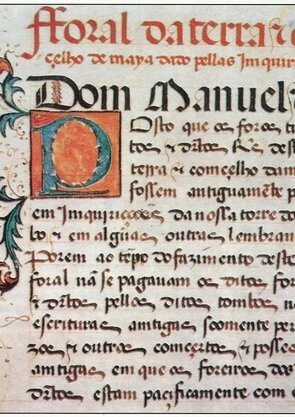 fforal da terra z co
çelho de maya dado pellas Imquiri
Dom Manuel
Posto que os foros t
tos z dr̃tos R̃s dest
terra z comçelho da m
fossem antiguamẽte p
em Imquiricoões da nossa torre do
bo z em algũas outras lembran
Porem ao tẽpo do fazimento deste
foral nã se pagauam os ditos for
z dr̃tos pellos ditos tombos n
escrituras amtigas soomente per
zos z outros comçertos z posse
amtigas em que os foreiros dos
dr̃tos estam pacificamente com